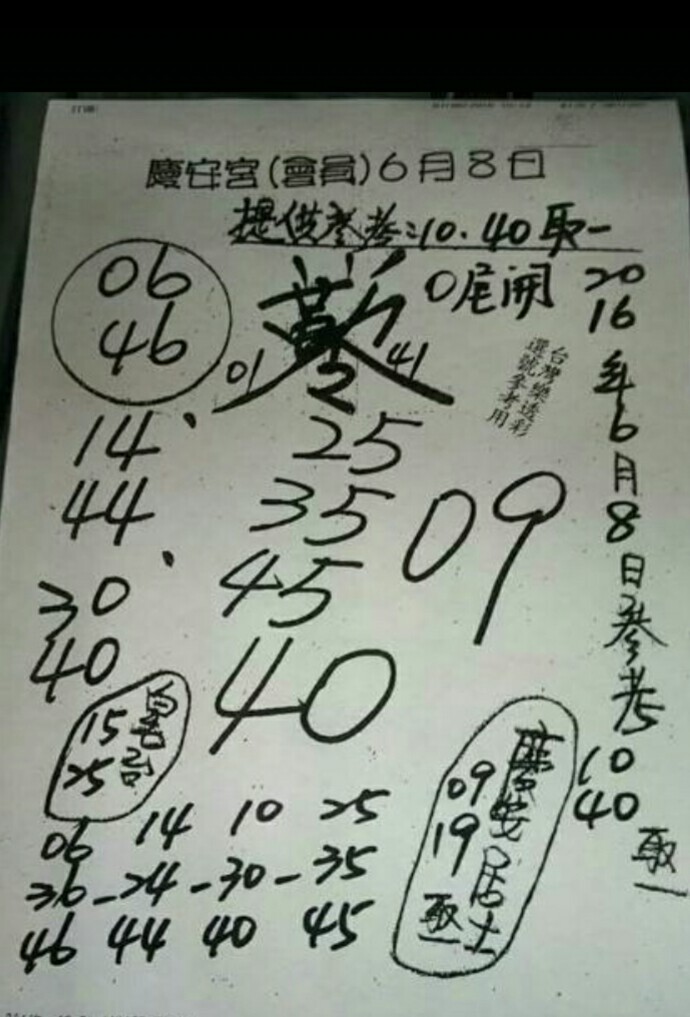 慶安宮(會員)6月8日
提供参考:10.40取一
06
46
01
41
0尾開
台灣樂透彩
選號參考用
14
44
30
40
25
35
45
40
09
2016年6月8日参考
10
40
取一
15
25
慶安居士
09
19
取一
06 14 10 25
36-24-30-35
46 44 40 45